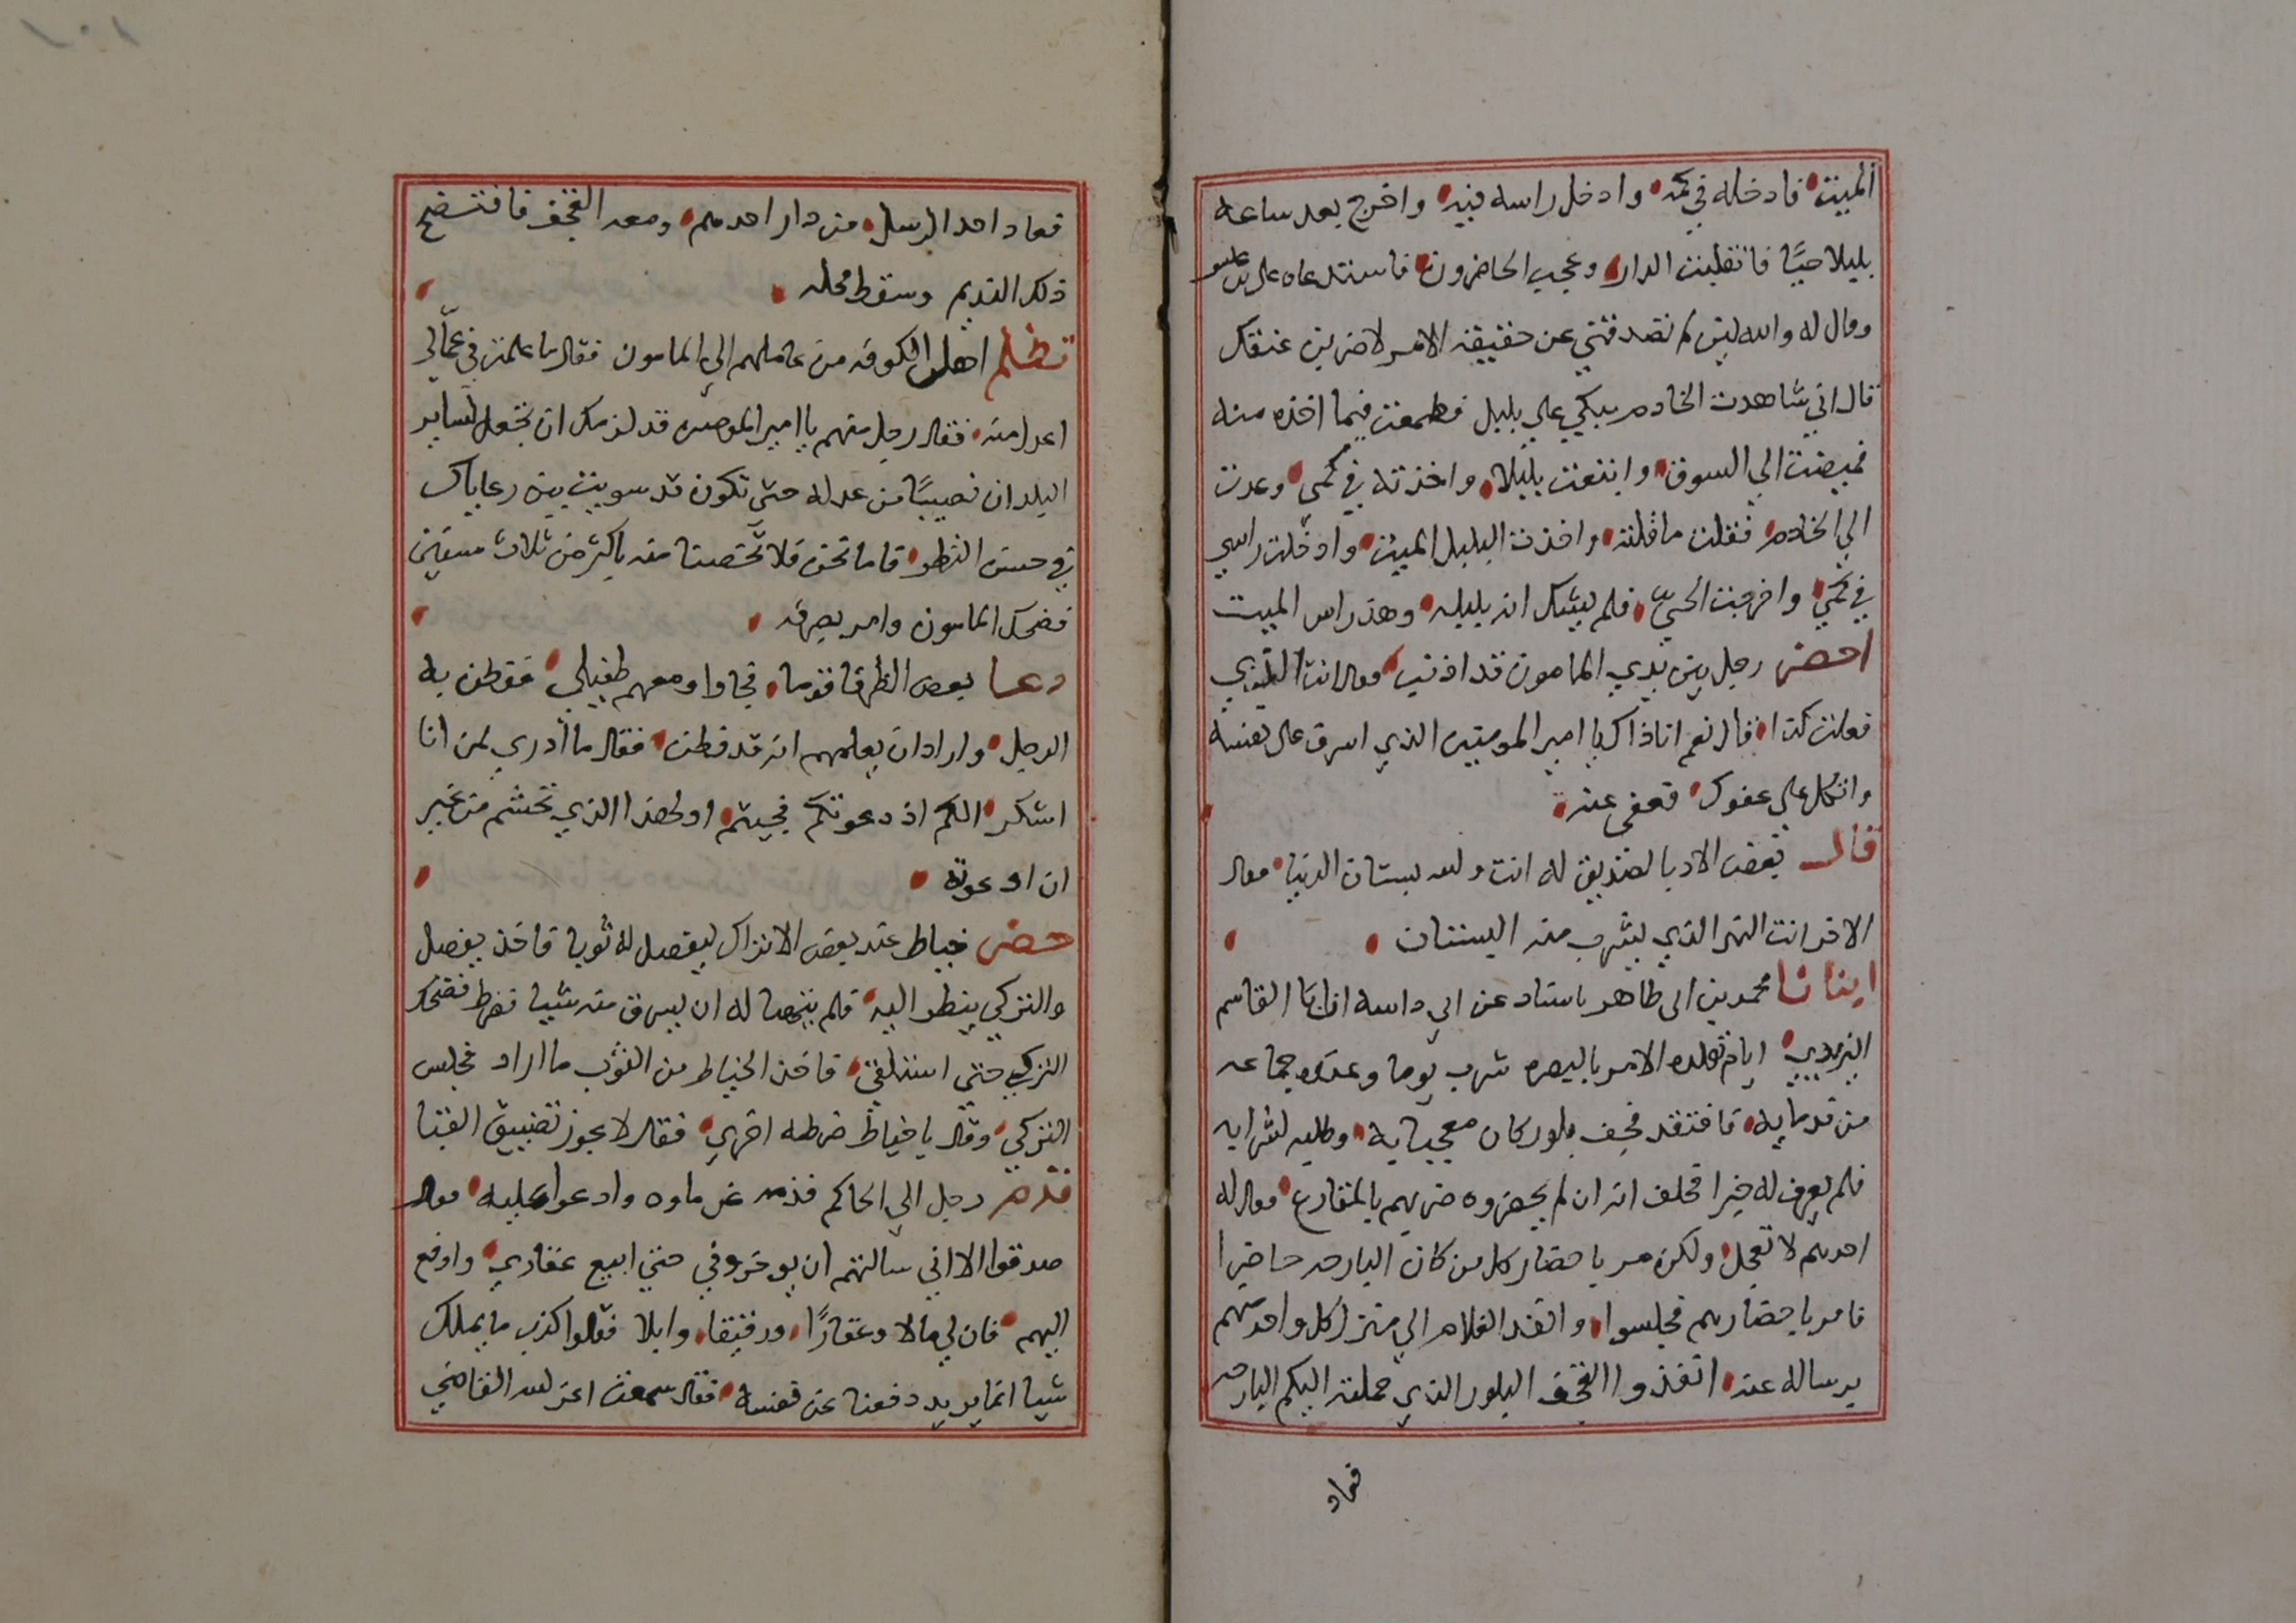 الميت فادخله في كمه وادخل راسه فيه واخرج بعد ساعه
بلبلا حيًا فانقلبت الدار وعجب الحاضرون فاستدعاه علي بن عيسى
وقال له والله لين لم تصدقني عن حقيقة الامر لاضربن عنقك
قال اني شاهدت الخادم يبكي علي بلبل فطمعت فيما اخذه منه
فمضيت الي السوق وابتعت بلبلا واخذته في كمي وعدت
الي الخادم فقلت ماقلته واخذت البلبل الميت وادخلت راسي
في كمي واخرجت الحي فلم يشك انه بلبله وهذ راس الميت
احضر رجل بين يدي المامون قد اذنب فقال انت الذي
فعلت كذا قال نعم انا ذاك يا امير المومنين الذي اسرف على نفسه
واتكل علي عفوك فعفى عنه
قال بعض الادبا لصديق له انت والله بستان الدنيا فقال
الاخر انت النهر الذي يشرب منه البستان
انبانا محمد بن ابي طاهر باسناد عن ابي داسه ان ابا القاسم
البريدي ايام تقلده الامر بالبصره شرب يوما وعنده جماعه
من ندمايه فافتقد قحف بلور كان معجبا به وطلبه لشرابه
فلم يعرف له خبرا فحلف انه ان لم يحضروه ضربهم بالمقارع فقال له
احدهم لا تعجل ولكن مر باحضار كل من كان البارحه حاضرا
فامر باحضارهم فجلسوا وانفذ الغلام الي منزل كل واحد منهم
برساله عنه انفذوا القحف البلور الذي حملته اليكم البارحه
فعاد
فعاد احد الرسل من دار احدهم ومعه القحف فافتضح
ذلك النديم وسقط محله
تظلم اهل الكوفه من عاملهم الي المامون فقال ما علمت في عمّالي
اعدل منه فقال رجل منهم يا امير المومنين قد لزمك ان تجعل لساير
البلدان نصيبًا من عدله حتى تكون قد سويت بين رعاياك
في حسن النظر فاما نحن فلا تخصنا منه باكثر من ثلاث سنين
فضحك المامون وامر بصرفه
دعا بعض الظرفا قوما فجاوا ومعهم طفيلي ففطن به
الرجل واراد ان يعلمهم انه قد فطن فقال ما ادري لمن انا
اشكر الكم اذ دعوتكم فجيتم او لهذا الذي تحشم من غير
ان ادعوته
حضر خياط عند بعض الاتراك ليفصل له ثوبا فاخذ يفصل
والتركي ينظر اليه فلم يتهيا له ان يسرق منه شيا فضرط فضحك
التركي حتي استلقي فاخذ الخياط من الثوب ما اراد فجلس
التركي وقال يا خياط ضرطه اخري فقال لا يجوز تضييق القبا
قدم رجل الي الحاكم قدمه غرماوه وادعوا عليه فقال
صدقوا الا اني سالتهم ان يوخروني حتي ابيع عقاري وادفع
اليهم فان لي مالا وعقارًا ورقيقا وابلا فقالوا كذب ما يملك
شيا انما يريد دفعنا عن نفسه فقال سمعت اعز الله القاضي